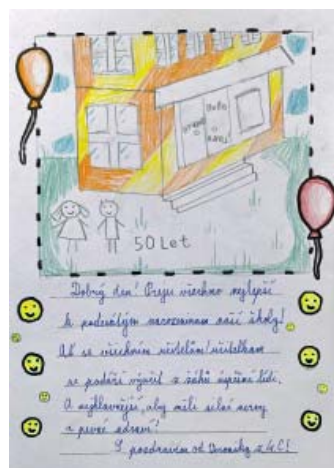 50 Let
Dobrý den! Přeju všechno nejlepší
k padesátým narozeninám naší školy!
Ať se všechněm učitelům/učitelkám
se podaří vyučit z žáků úspěšné lidi.
A nejhlavnější, aby měli silné nervy
a pevné zdraví!
S pozdravem od Veroniky z 4.C!